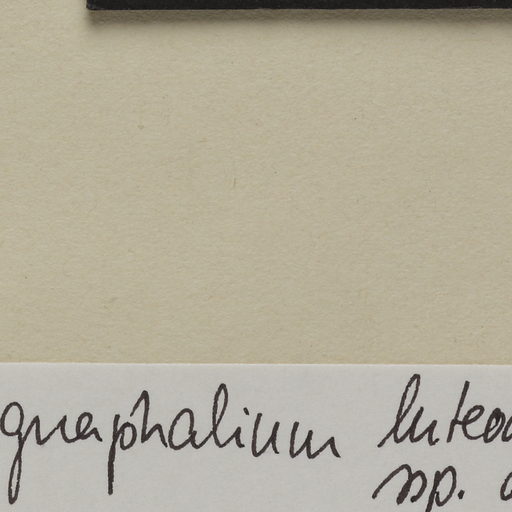 gnaphalium luteoa
ssp.